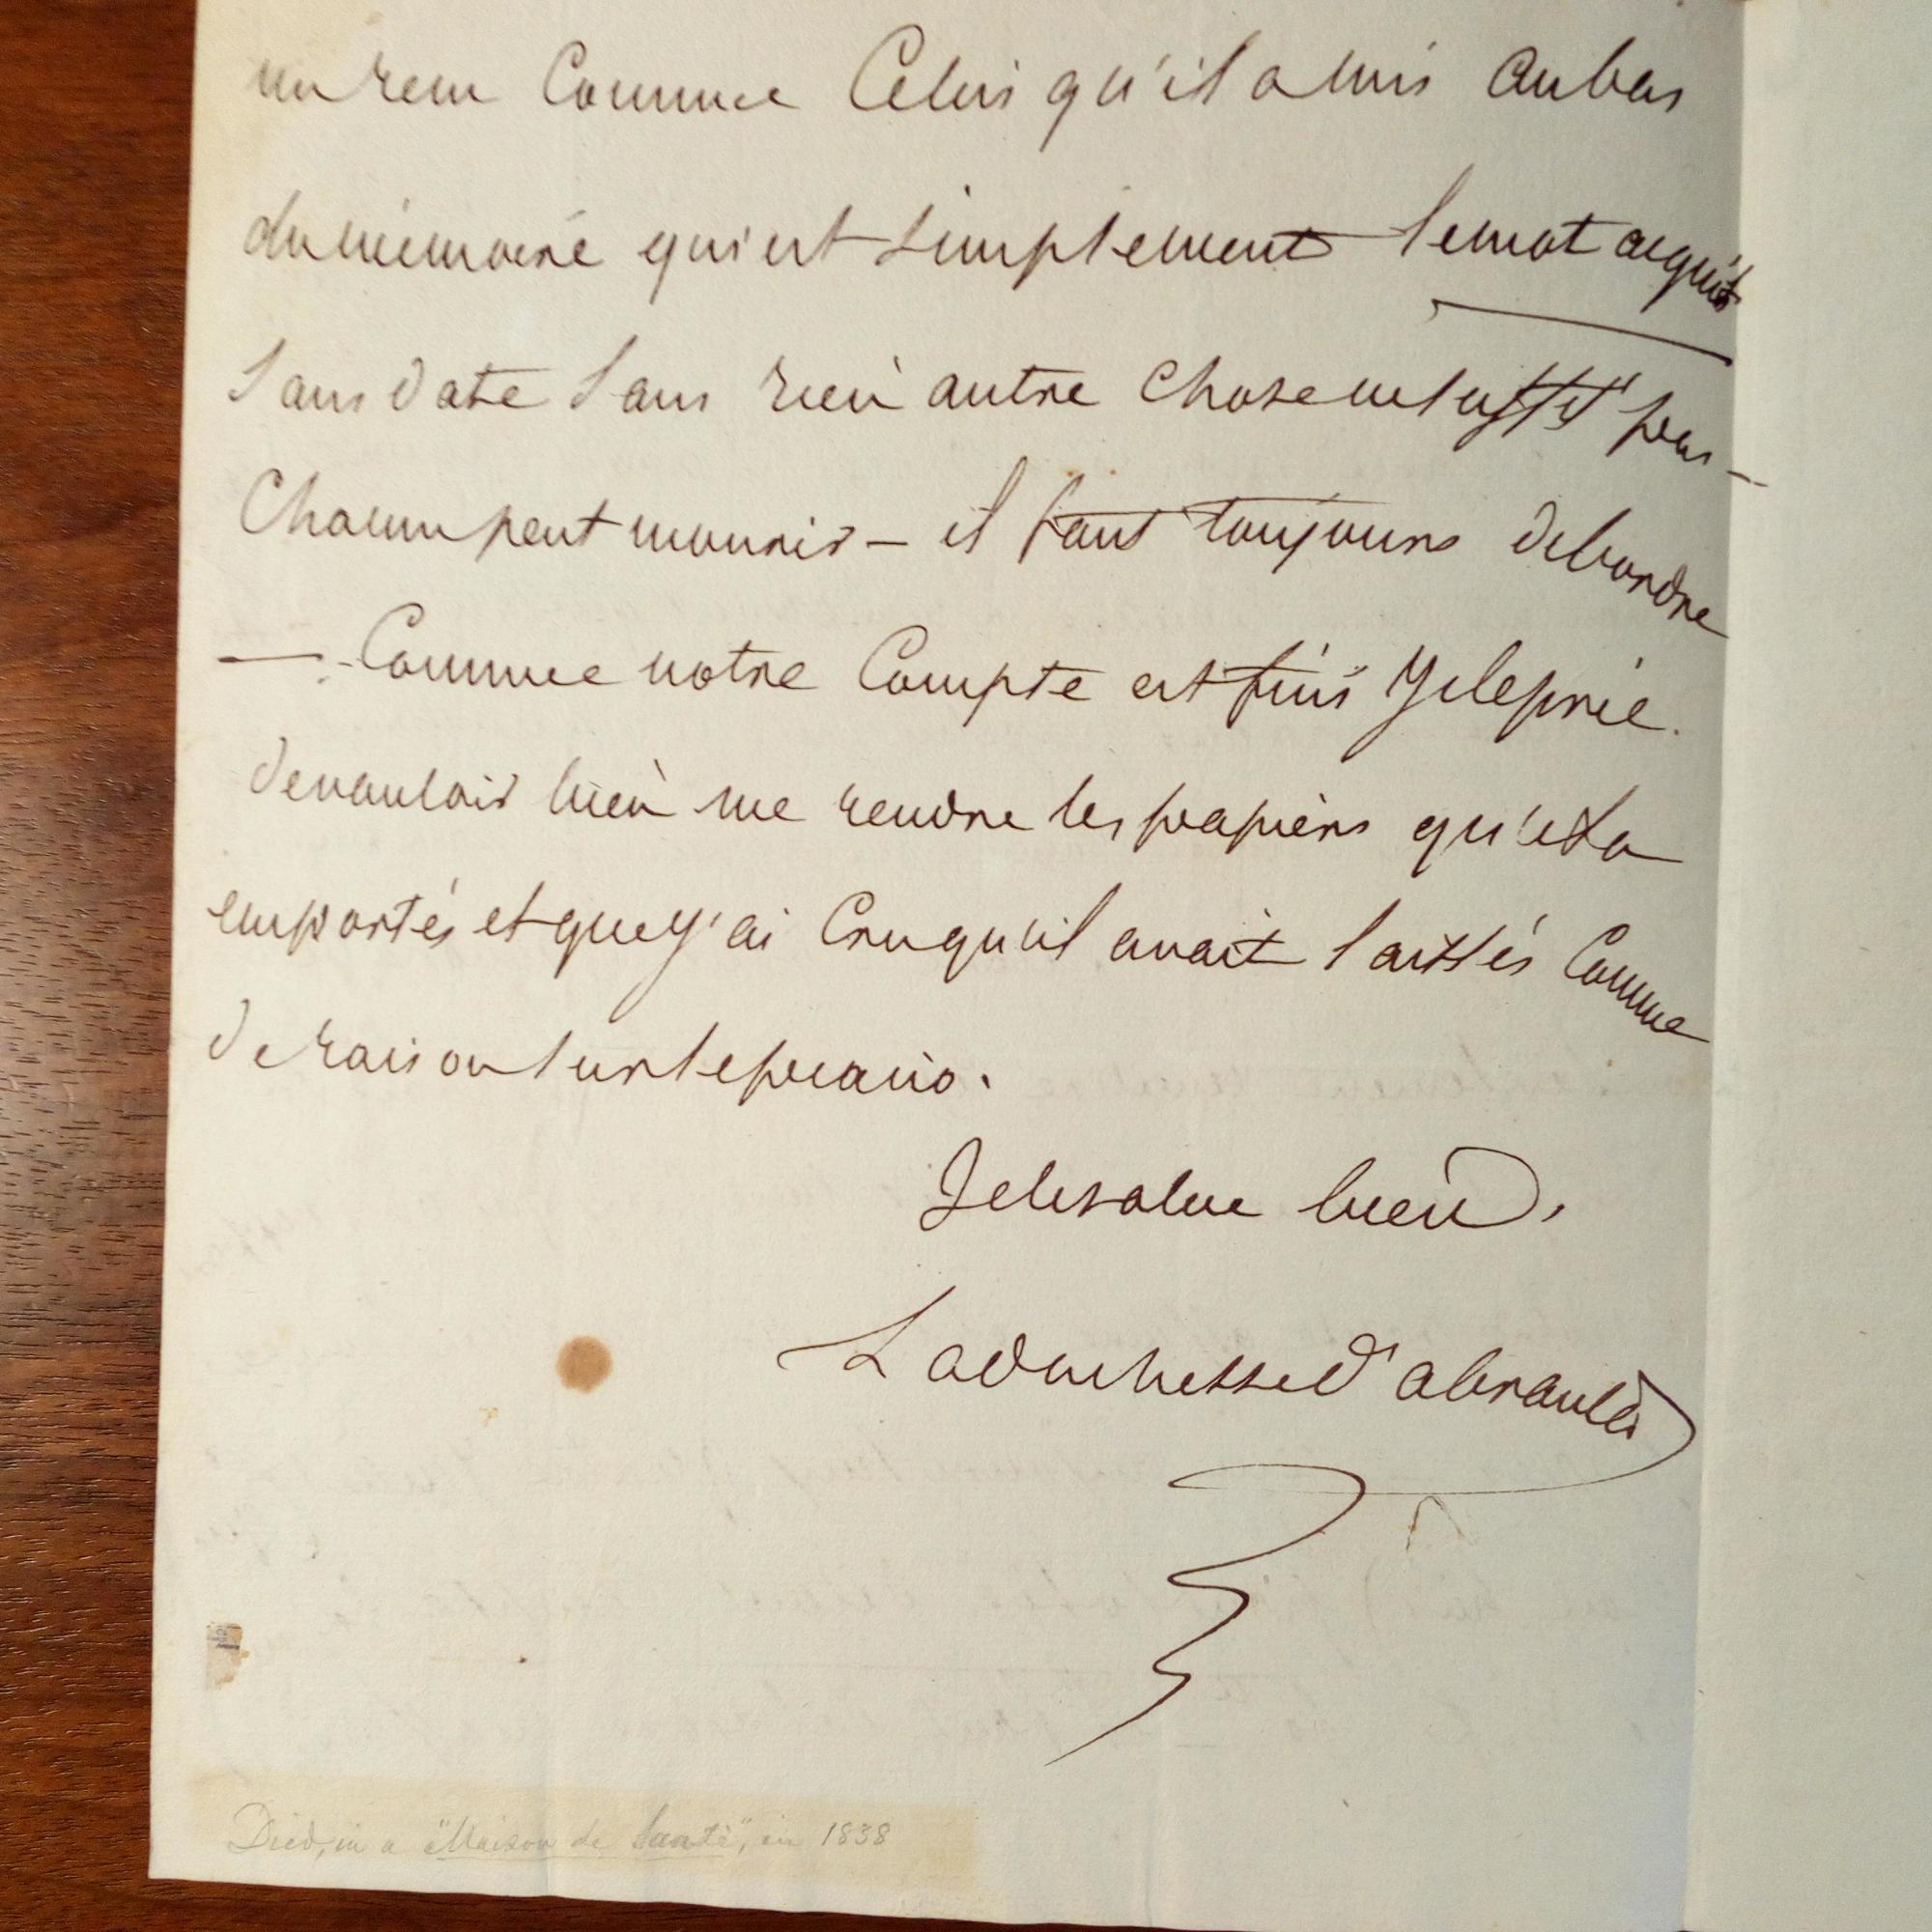 un reçu Comme Celui qu'il a mis au bas
du mémoire qui est simplement le mot acquit
sans date sans rien autre chose ne suffit pas —
Chacun peut mourir — il faut toujours de l'ordre
— Comme notre Compte est fini Je le prie.
de vouloir bien me rendre les papiers qu'il a
emportés et que j'ai Cru qu'il avait laissés Comme
de raison sur le piano.
Je le salue bien.
La duchesse d'abrantès
Died, in a "Maison de Santé", in 1838